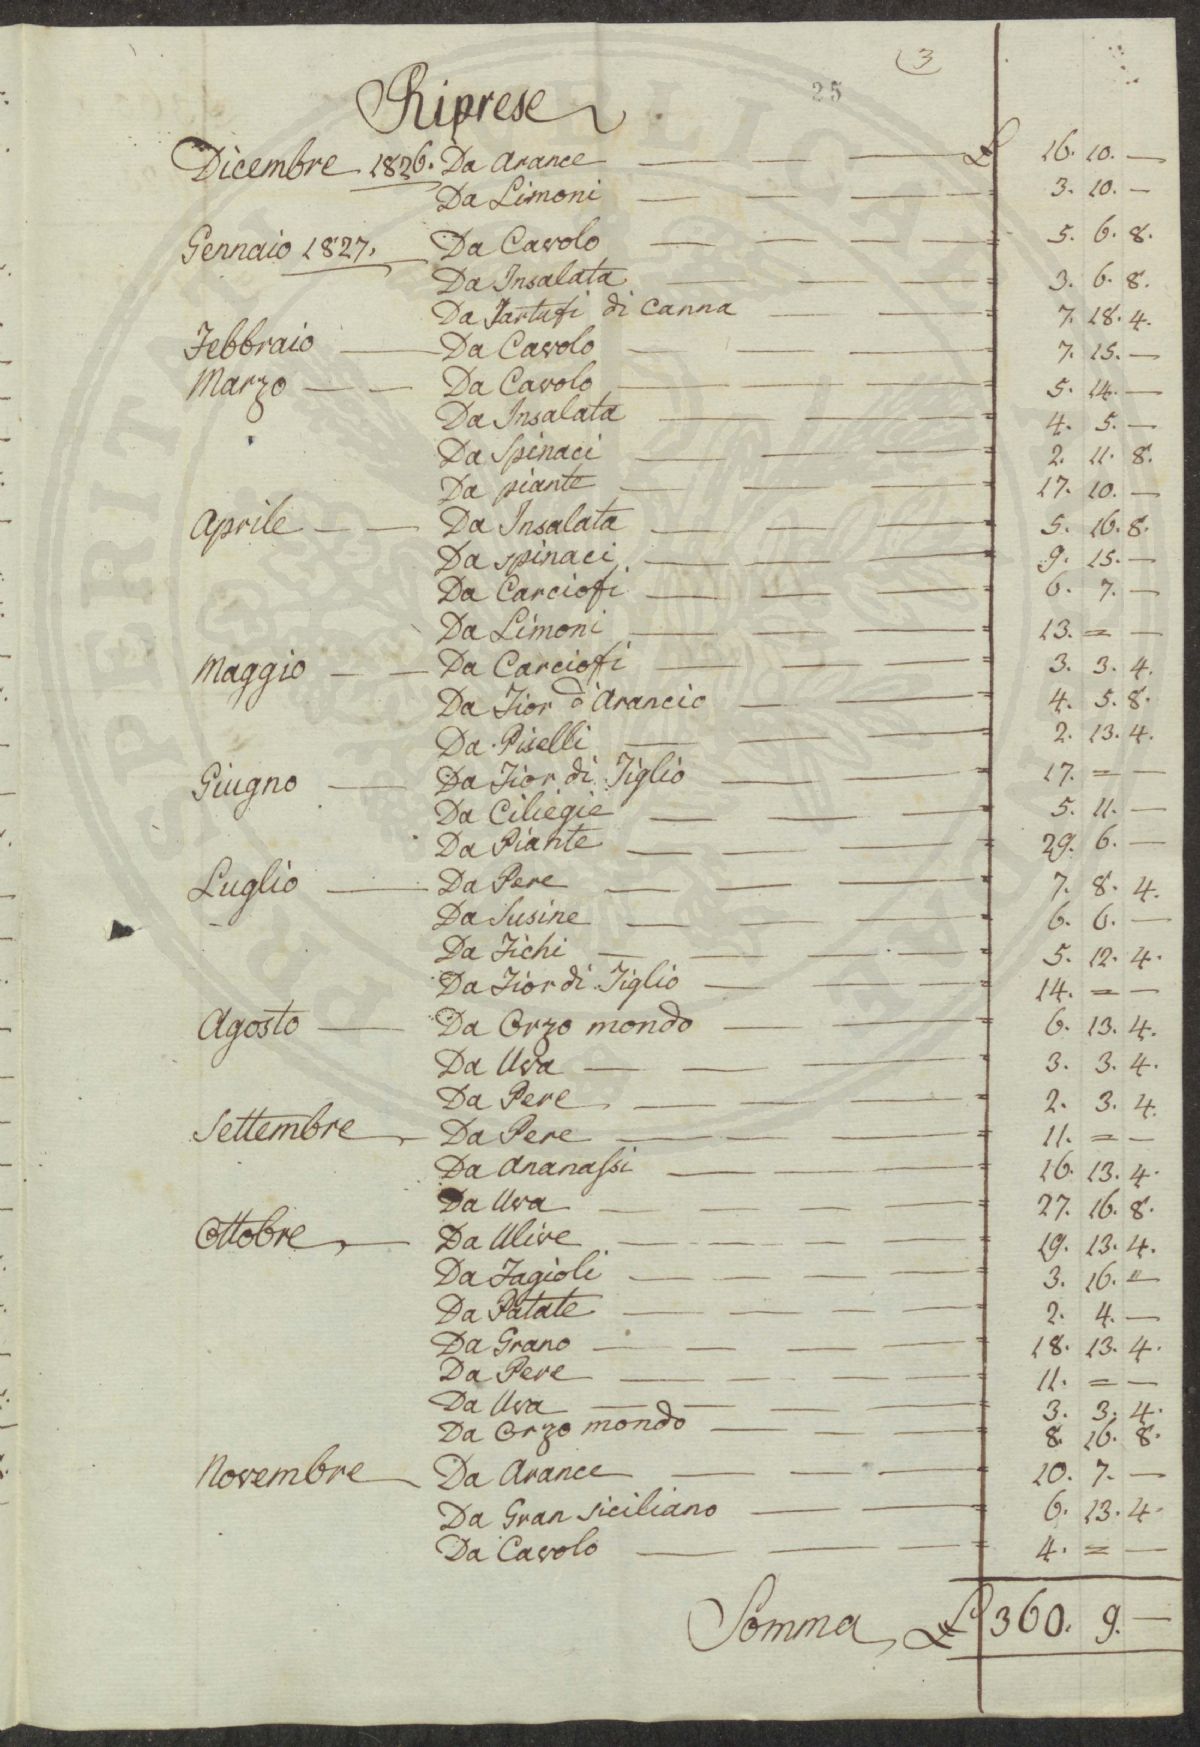 (3
25
Riprese
Dicembre 1826. Da Arance £ 16. 10. —
Da Limoni 3. 10. —
Gennaio 1827. Da Cavolo 5. 6. 8.
Da Insalata 3. 6. 8.
Da Tartufi di Canna 7. 18. 4.
Febbraio — Da Cavolo 7. 15. —
Marzo — — Da Cavolo 5. 14. —
Da Insalata 4. 5. —
Da Spinaci 2. 11. 8.
Da piante 17. 10. —
Aprile — — Da Insalata 5. 16. 8.
Da spinaci 9. 15. —
Da Carciofi 6. 7. —
Da Limoni 13. = —
Maggio — — Da Carciofi 3. 3. 4.
Da Fior d'Arancio 4. 5. 8.
Da Piselli 2. 13. 4.
Giugno — Da Fior di Tiglio 17. = —
Da Ciliegie 5. 11. —
Da Piante 29. 6. —
Luglio — Da Pere 7. 8. 4.
Da Susine 6. 6. —
Da Fichi 5. 12. 4.
Da Fior di Tiglio 14. = —
Agosto — Da Orzo mondo 6. 13. 4.
Da Uva 3. 3. 4.
Da Pere 2. 3. 4.
Settembre — Da Pere 11. = —
Da Ananassi 16. 13. 4.
Da Uva 27. 16. 8.
Ottobre — Da Ulive 19. 13. 4.
Da Fagioli 3. 16. =
Da Patate 2. 4. —
Da Grano 18. 13. 4.
Da Pere 11. = —
Da Uva 3. 3. 4.
Da Orzo mondo 8. 16. 8.
Novembre — Da Arance 10. 7. —
Da Gran siciliano 6. 13. 4.
Da Cavolo 4. = —
Somma £ 360. 9. —